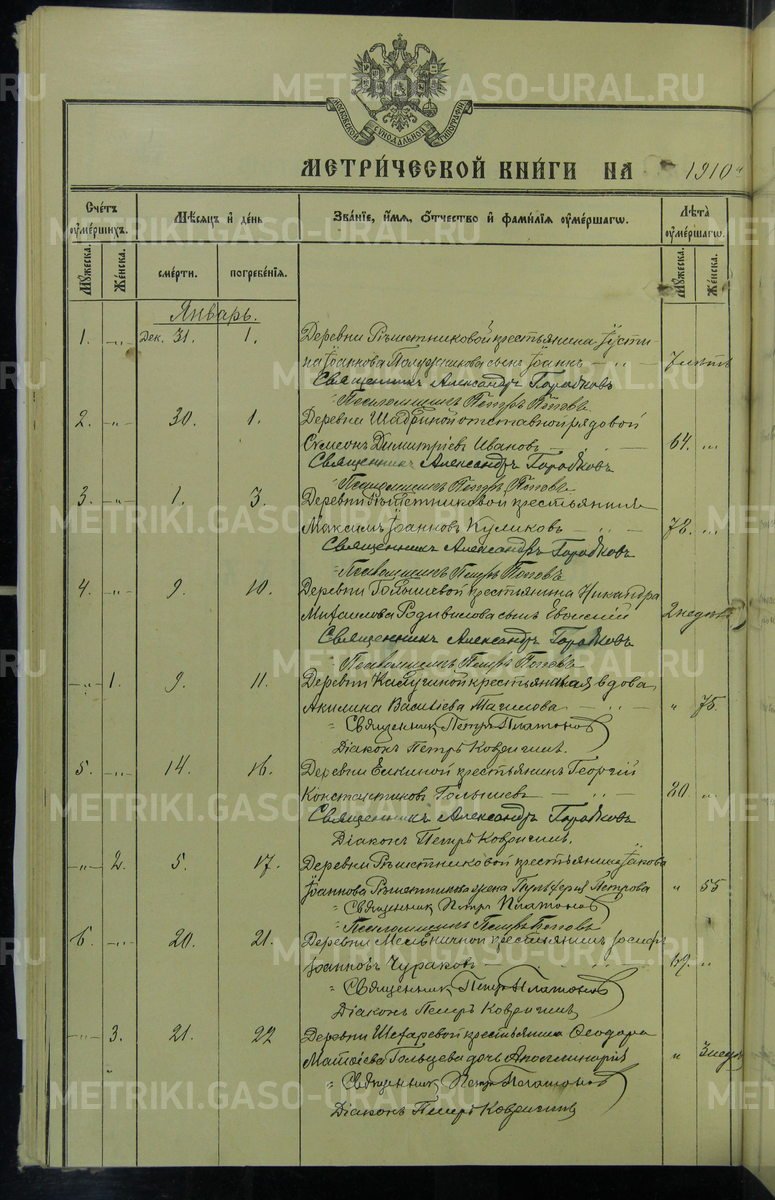 МОСКОВСКОЙ СѴНОДАЛЬНОЙ ТИПОГРАФІИ
МЕТРИ́ЧЕСКОЙ КНИ́ГИ НА 1910
Сче́тъ ᲂу҆ме́ршихъ. Мѣ́сяцъ и҆ де́нь Зва́нїе, и҆́мя, ѻ҆́тчество и҆ фами́лїя ᲂу҆ме́ршагѡ. Лѣ́та ᲂу҆ме́ршагѡ.
Мꙋ́жеска. Же́нска. сме́рти. погребе́нїя. Мꙋ́жеска. Же́нска.
Январь.
1. -"- Дек. 31. 1. Деревни Рѣшетниковой крестьянина Іусти-
на Іоаннова сынъ Іоаннъ — 7 лѣтъ
Священникъ Александръ Горбковъ
Псаломщикъ Петръ Поповъ
2. -"- 30. 1. Деревни Шадриной отставной рядовой
Сѵмеонъ Димитріевъ Ивановъ — 64. "
Священникъ Александръ Горбковъ
Псаломщикъ Петръ Поповъ
3. -"- 1. 3. Деревни Рѣшетниковой крестьянинъ
Максимъ Іоанновъ Куликовъ — " — 72. "
Священникъ Александръ Горбковъ
Псаломщикъ Петръ Поповъ
4. -"- 9. 10. Деревни Голышевой крестьянина Никандра
Михаилова Родивилова сынъ Евѳимій 2 недѣли
Священникъ Александръ Горбковъ
Псаломщикъ Петръ Поповъ
-"- 1. 9. 11. Деревни Калугиной крестьянская вдова
Акилина Васильева Тагилова — " — " 75.
Священникъ Петръ Платоновъ
Діаконъ Петръ Ковригинъ.
5. -"- 14. 16. Деревни Елкиной крестьянинъ Георгій
Константиновъ Голышевъ — " — 80 "
Священникъ Александръ Горбковъ
Діаконъ Петръ Ковригинъ.
-"- 2. 5. 17. Деревни Рѣшетниковой крестьянина Іакова
Іоаннова жена Пульхерія Петрова " 55
Священникъ Петръ Платоновъ
Псаломщикъ Петръ Поповъ
6. -"- 20. 21. Деревни Мельничной крестьянинъ Іосифъ
Іоанновъ Чураковъ — 69. "
Священникъ Петръ Платоновъ
Діаконъ Петръ Ковригинъ
-"- 3. 21. 22 Деревни крестьянина Ѳеодора
Матѳіева Гольцева дочь Аполлинарія " 3 недѣл
Священникъ Петръ Платоновъ
Діаконъ Петръ Ковригинъ
METRIKI.GASO-URAL.RU